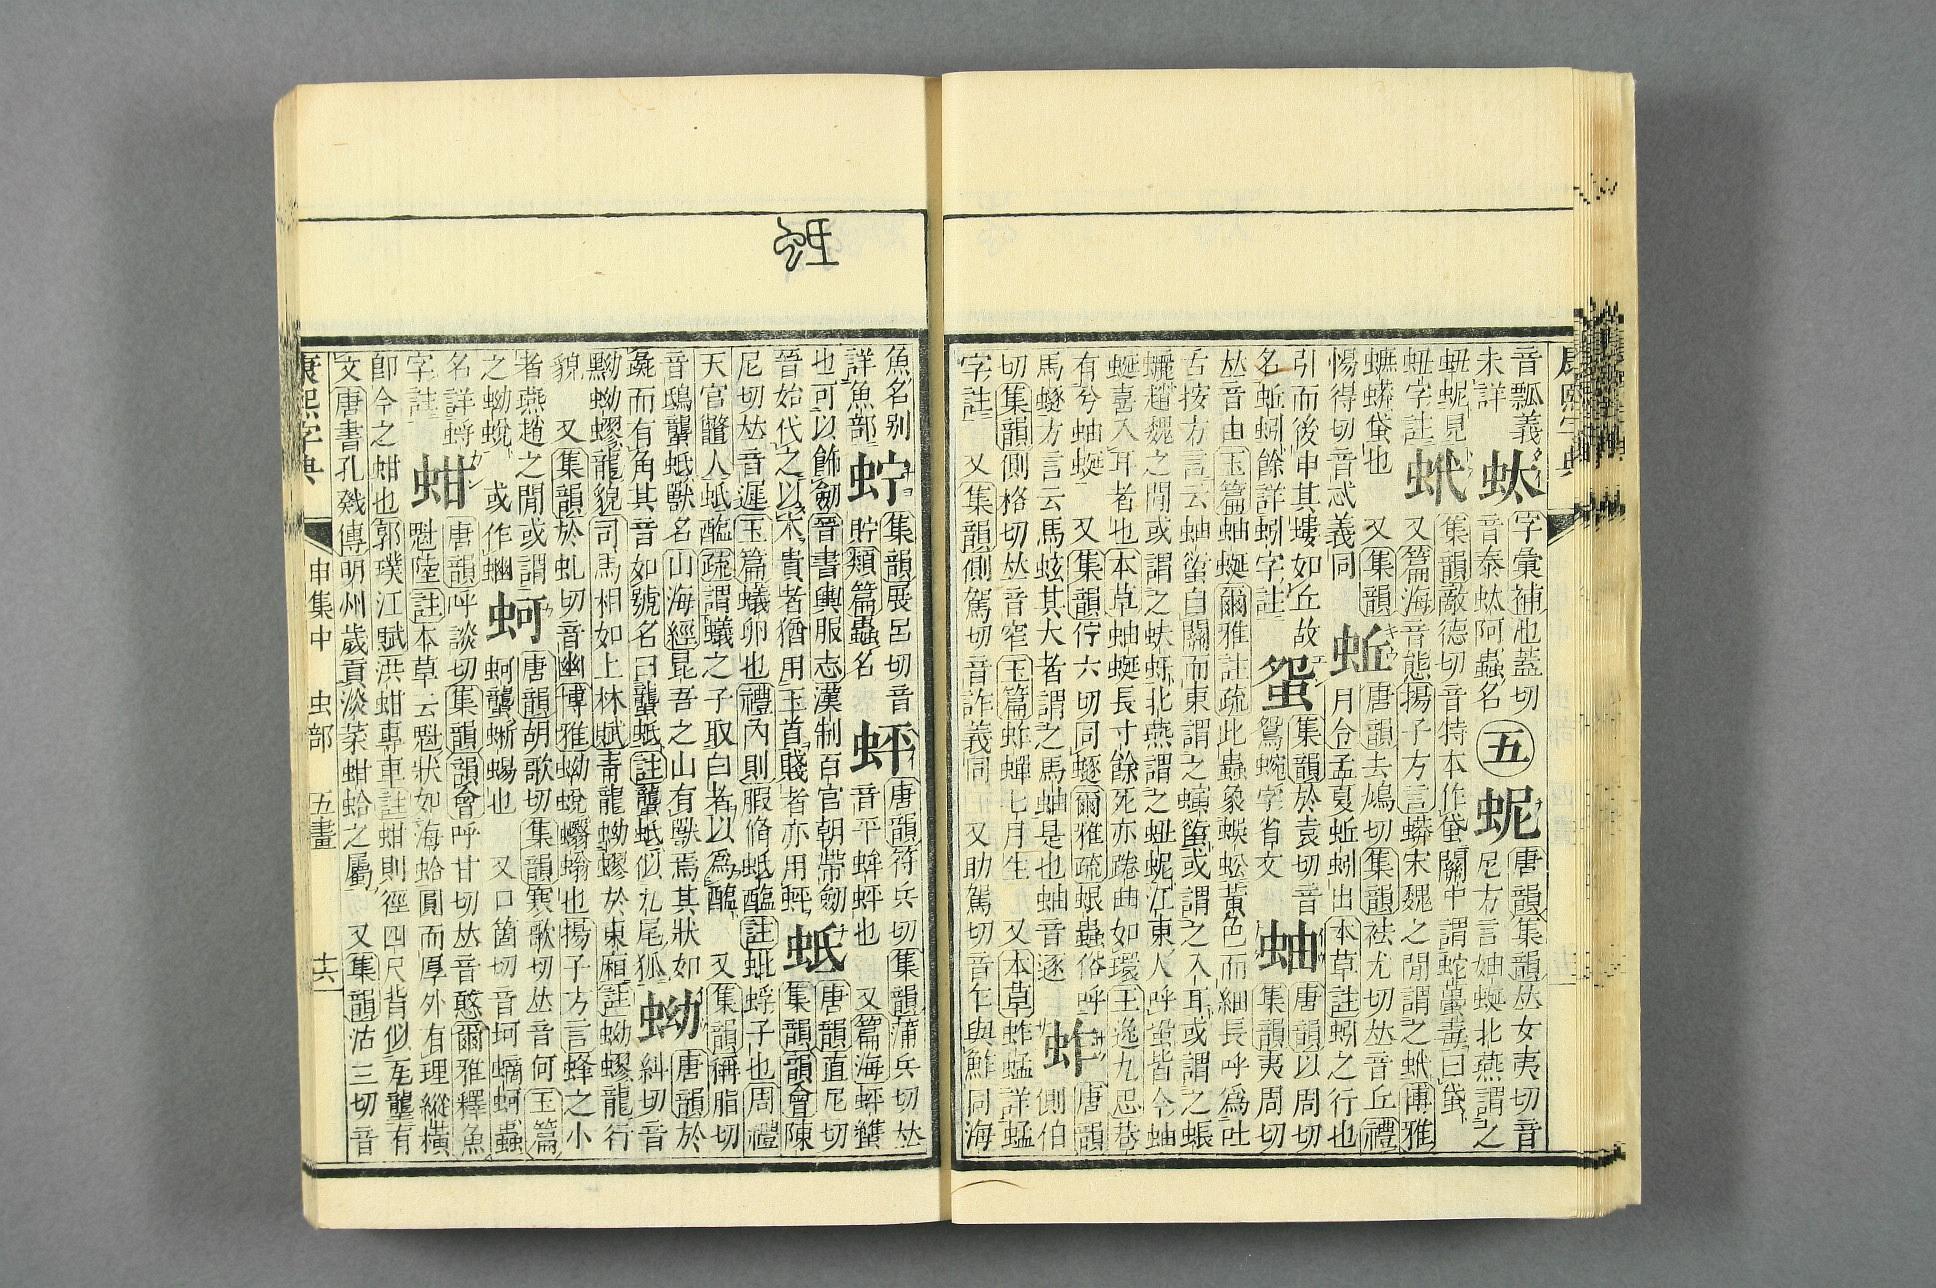 音瓢義
未詳 蚮 字彙補他蓋切
音泰蚮阿蟲名 五 蚭 唐韻集韻𠀤女夷切音
尼方言蚰蜒北燕謂之
蚭見
蚮 集韻敵德切音特本作蟘關中謂蛇蠆毒曰蟘
字註 又篇海音態揚子方言蟒宋魏之閒謂之蚮博雅
蟅蟒蟘也 又集韻
惕得切音忒義同 蚯 唐韻去鳩切集韻袪尤切𠀤音丘禮
月令孟夏蚯蚓出本草註蚓之行也
引而後申其塿如丘故
名蚯蚓餘詳蚓字註 蛪 集韻於袁切音
鴛蜿字省文 蚰 唐韻以周切
集韻夷周切
𠀤音由玉篇蚰蜒爾雅註疏此蟲象蜈蚣黃色而細長呼爲吐
舌按方言云蚰蜒自關而東謂之螾𧍢或謂之入耳或謂之蜄
蠷趙魏之閒或謂之蚨虶北燕謂之蚭江東人呼蛩皆今蚰
蜒喜入耳者也本草蚰蜒長寸餘死亦踡曲如環王逸九思巷
有兮蚰蜒 又集韻佇六切同蝫爾雅疏蛝蟲俗呼
馬蝬方言云馬蚿其大者謂之馬蚰是也蚰音逐 蚱 唐韻
側伯
切集韻側格切𠀤音窄玉篇蚱蟬七月生 又本草蚱蜢詳蜢
字註 又集韻側駕切音詐義同 又助駕切音乍與鮓同海
魚名別
詳魚部 䖳 集韻展呂切音
貯類篇蟲名 蚲 唐韻符兵切集韻蒲兵切𠀤
音平蛢蚲也 又篇海蚲
也可以飾劒晉書輿服志漢制百官朝帶劒
晉始代之以木貴者猶用玉首賤者亦用蚲 蚳 唐韻直尼切
集韻韻會陳
尼切𠀤音遲玉篇蟻卵也禮內則腶脩蚳醢註蚍蜉子也周禮
天官鼈人蚳醢疏謂蟻之子取白者以爲醢 又集韻稱脂切
音鴟蠪蚳獸名山海經昆吾之山有獸焉其狀如
彘而有角其音如號名曰蠪蚳註蠪蚳似九尾狐 蚴 唐韻於
糾切音
黝蚴蟉龍貌司馬相如上林賦靑龍蚴蟉於東廂註蚴蟉龍行
貌 又集韻於虬切音幽博雅蚴蛻蠮螉也揚子方言蜂之小
者燕趙之閒或謂
之蚴蛻 或作蟵 蚵 唐韻胡歌切集韻寒歌切𠀤音何玉篇
蚵蠪蜥蜴也 又口箇切音坷螪蚵蟲
名詳螪
字註 蚶 唐韻呼談切集韻韻會呼甘切𠀤音憨爾雅釋魚
魁陸註本草云魁狀如海蛤圓而厚外有理縱橫
卽今之蚶也郭璞江賦洪蚶專車註蚶則徑四尺背似瓦壟有
文唐書孔戣傳明州歲貢淡菜蚶蛤之屬 又集韻沽三切音
康熙字典 申集中 虫部 五畫 十六